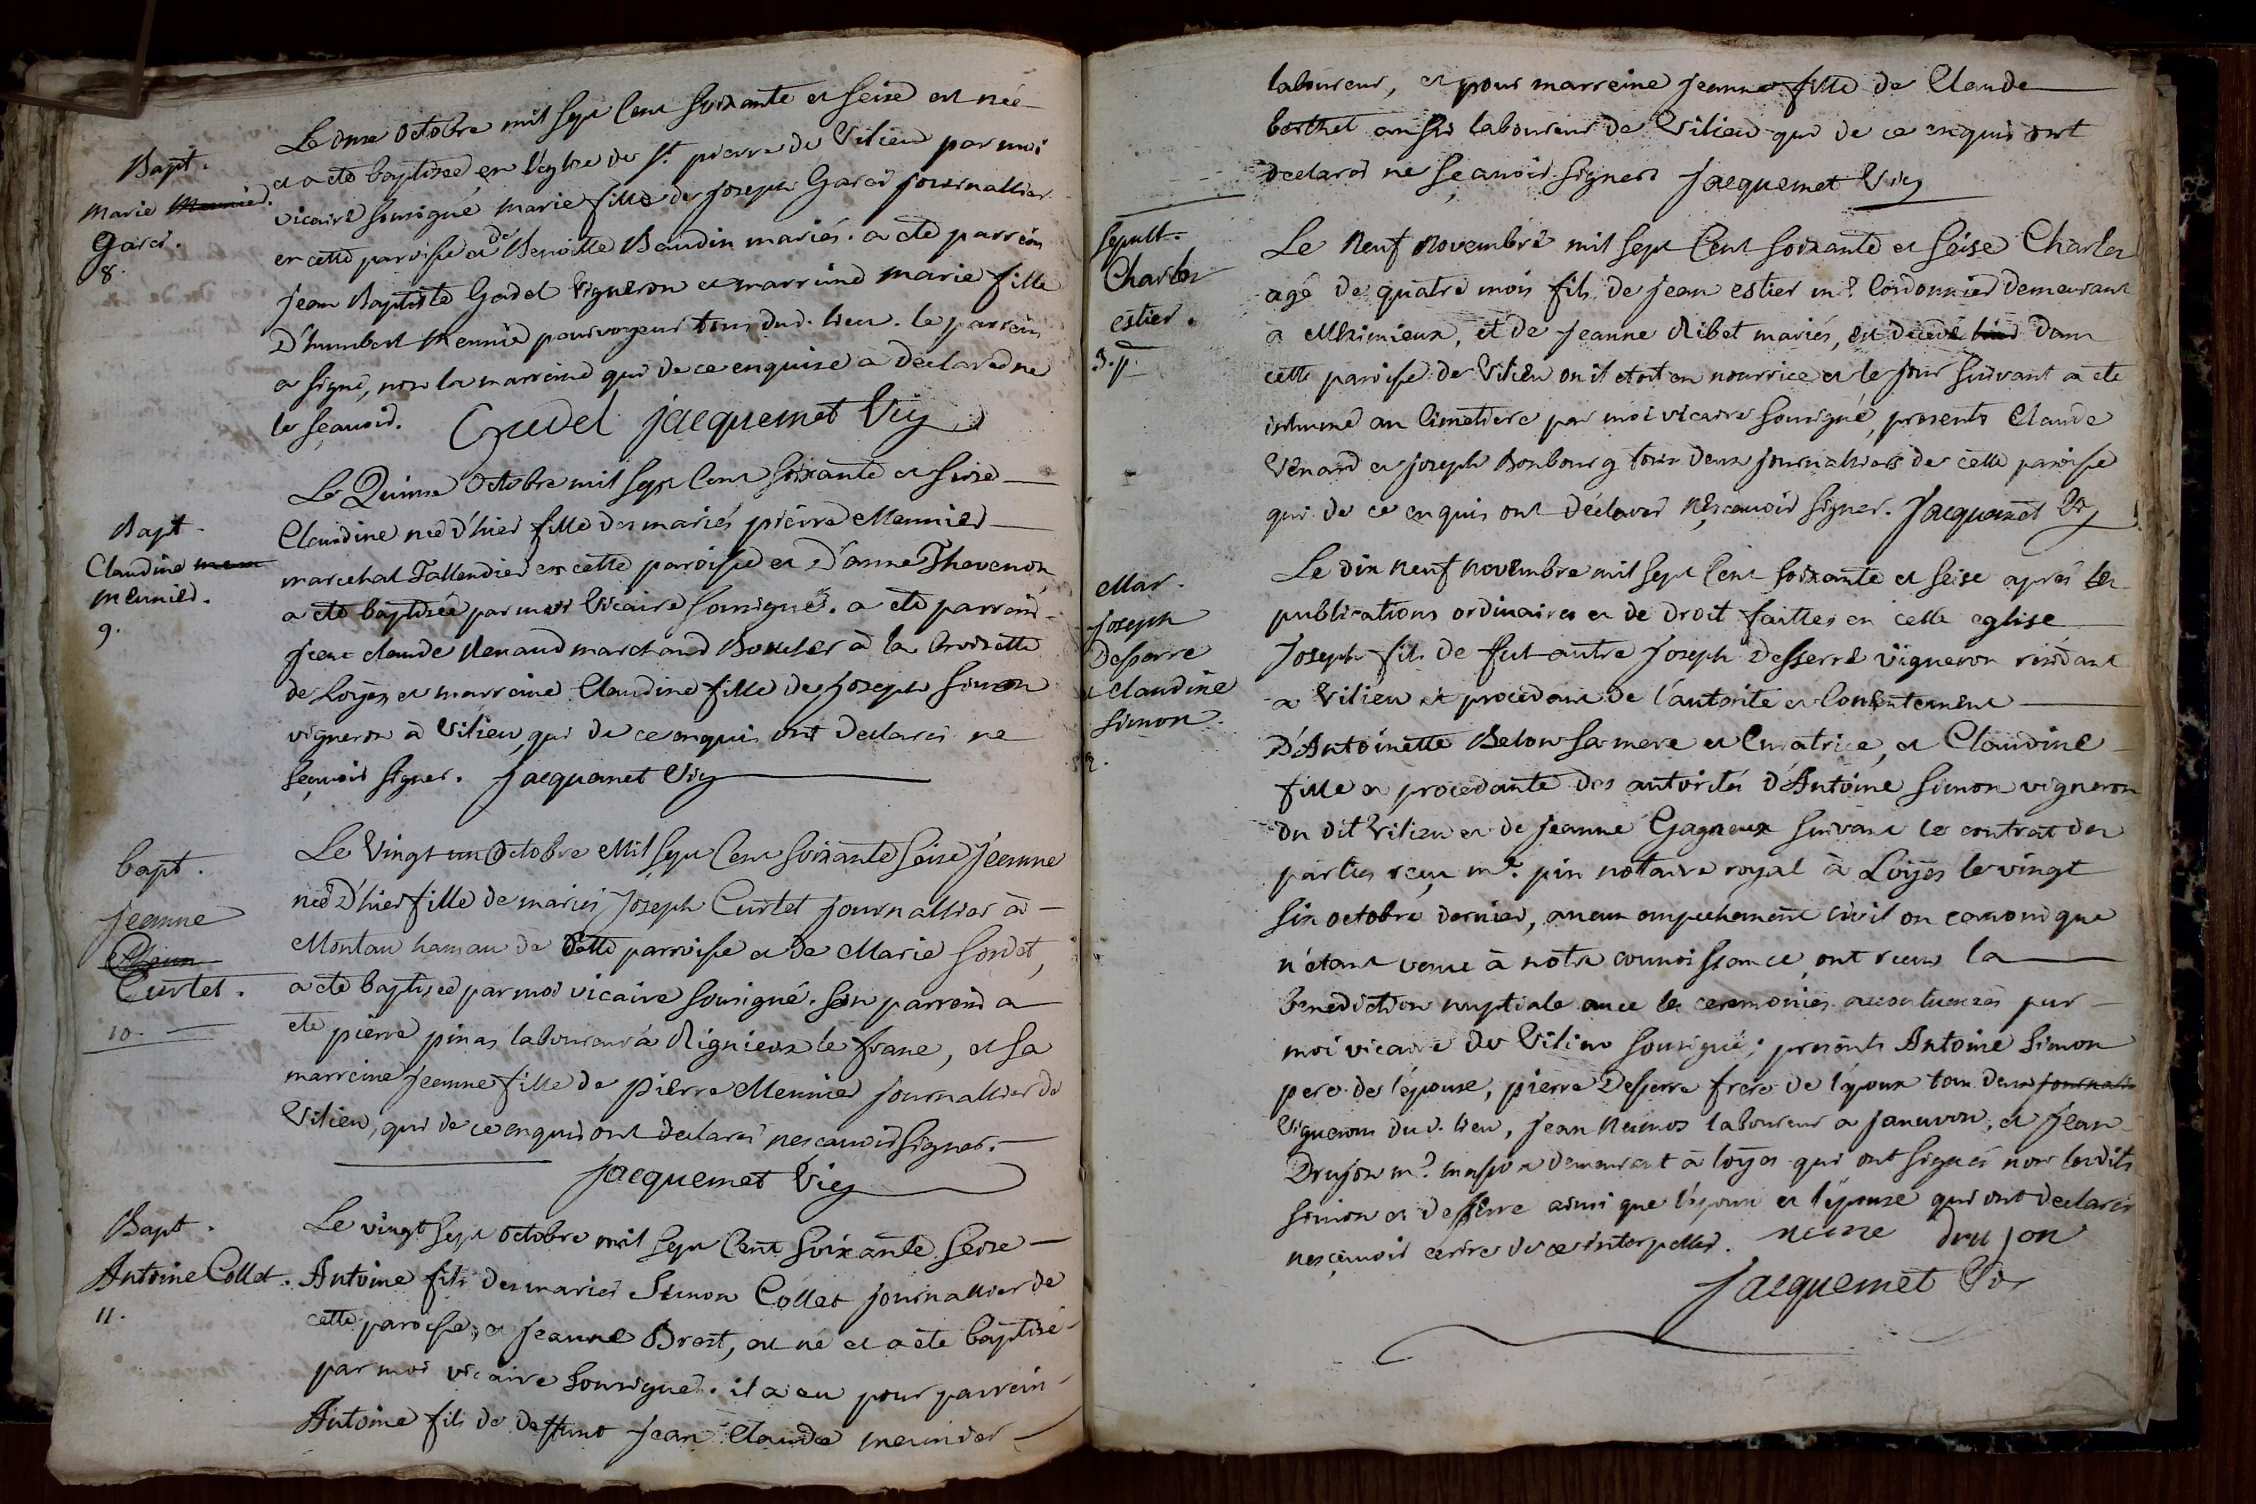 Bapt.
Marie Meunier.
Garci.
8.
Le onze octobre mil sept cent soixante et seize est née
et a eté baptisée en l'eglise de St. pierre de Vilieu par moi
vicaire sousigné marie fille de joseph Garci journallier
en cette paroisse et de Benoitte Baudin mariés. a eté parrein
jean Baptiste Godel Vigneron et marreine marie fille
D'humbert Meunié pourvoyeur tous dud. lieu. le parrein
a signé, non la marreine qui de ce enquise a déclaré ne
le sçavoir. Gudel jacquemet Vic
Bapt.
Claudine meun
meunier.
9.
Le Quinze Octobre mil sept cent soixante et seize
Claudine née d'hier fille des mariés pierre Meunier
marechal Tallendier en cette paroisse et D'anne Thevenon
a eté baptisée par moi Vicaire sousigné. a eté parrein
jean claude Renaud marchand à la Croisette
de Loÿes et marreine Claudine fille de joseph simon
vigneron à Vilieu, qui de ce enquis ont declarés ne
sçavoir signer. jacquemet Vic
bapt.
jeanne
Curtet.
10.
Le Vingt un Octobre Mil sept cent soixante seize jeanne
née D'hier fille de mariés joseph Curtet journallier à
Montau hamau de cette parroisse et de Marie sordet,
a eté baptisée par moi vicaire sousigné. son parrein a
eté pierre pinas laboureur à Rignieux le franc, et sa
marreine jeanne fille de Pierre Meunier journallier de
Vilieu, qui de ce enquis ont declarés ne sçavoir signer.
jacquemet Vic
Bapt.
Antoine Collet.
11.
Le vingt sept octobre mil sept cent soixante seize
Antoine fils des mariés Simon Collet journallier de
cette paroisse, et jeanne Brost, est né et a eté baptisé
par moi vicaire sousigné. il a eu pour parrein
Antoine fils de deffunt jean Claude meunier
laboureur, et pour marreine jeanne fille de Claude
berthet aussi laboureur de Vilieu qui de ce enquis ont
declarés ne sçavoir signer jacquemet Vic
sepult.
Charles
estier.
3. p.
Le Neuf Novembre mil sept cent soixante et seise Charles
agé de quatre mois fils de jean estier me. Cordonnier demeurant
a Meximieux, et de jeanne Ribet mariés, est decedé dans
cette paroisse de Vilieu ou il etoit en nourrice et le jour suivant a eté
inhumé au cimetiere par moi vicaire sousigné, presents Claude
Venard et joseph Bonbourg tous deux journalliers de cette paroisse
qui de ce enquis ont déclarés ne sçavoir signer. jacquemet Vic
Mar.
joseph
desserre
et claudine
simon.
2.
Le dix neuf novembre mil sept cent soixante et seise aprés les
publications ordinaires et de droit faittes en cette eglise
Joseph fils de fut autre joseph Desserre vigneron residant
a Vilieu et procedant de l'autorité et consentement
D'Antoinette Belon sa mere et Curatrice, et Claudine
fille et procedante des autorités d'Antoine simon vigneron
du dit Vilieu et de jeanne Gagneux suivant le contrat des
parties reçu me. pin notaire royal à Loÿes le vingt
six octobre dernier, aucun empechement civil ou canonique
n'etant venu à notre connoissance, ont reçus la
benediction nuptiale avec les ceremonies accoutumées par
moi vicaire de Vilieu sousigné; presents Antoine simon
pere de l'epouse, pierre Desserre frere de l'epoux tous deux journalli
Vignerons dud. lieu, jean laboureur a janivon, et jean
Drujon me. masson demeurant à loÿes qui ont signés non lesdits
simon et desserre ainsi que l'epoux et l'epouse qui ont declarés
ne sçavoir ecrire de ce interpellés. neme drujon
jacquemet Vic